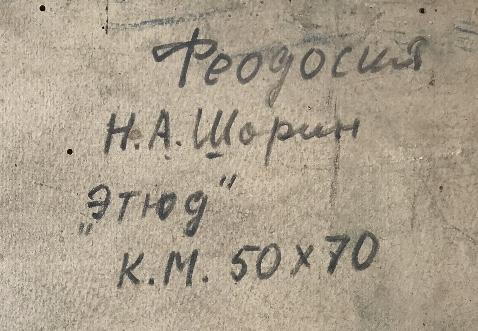 Феодосия
Н.А. Шорин
„Этюд"
К.М. 50х70